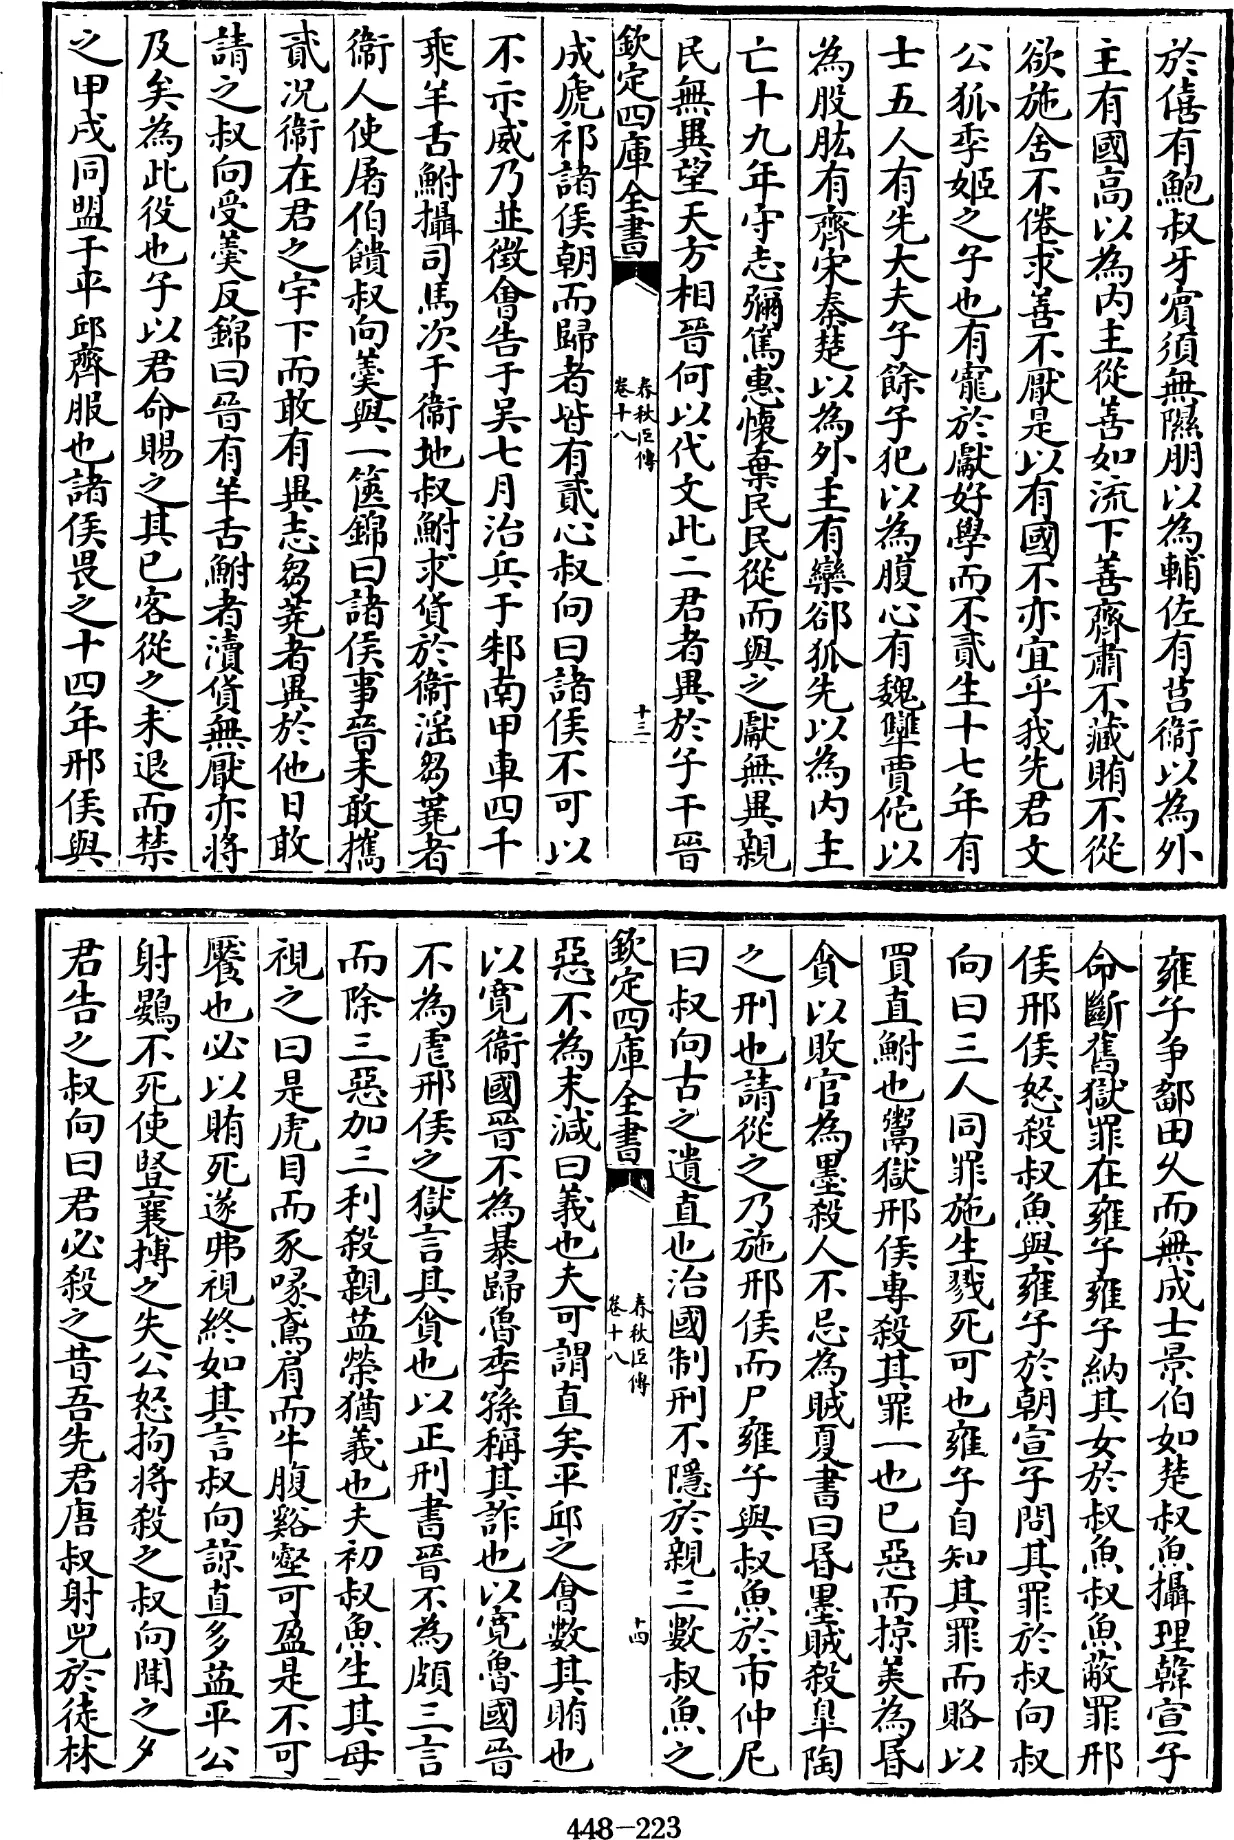 於僖有鮑叔牙賓須無隰朋以為輔佐有莒衛以為外
主有國高以為内主從善如流下善齊肅不藏賄不從
欲施舍不倦求善不厭是以有國不亦宜乎我先君文
公狐季姬之子也有寵於獻好學而不貳生十七年有
士五人有先大夫子餘子犯以為腹心有魏犨賈佗以
為股肱有齊宋秦楚以為外主有欒郤狐先以為内主
亡十九年守志彌篤惠懷棄民民從而與之獻無異親
民無異望天方相晉何以代文此二君者異於子干晉
欽定四庫全書
春秋臣傳
卷十八
十三
成虒祁諸侯朝而歸者皆有貳心叔向曰諸侯不可以
不示威乃並徵會告于吴七月治兵于邾南甲車四千
乘羊舌鮒攝司馬次于衛地叔鮒求貨於衛淫芻蕘者
衛人使屠伯饋叔向羹與一篋錦曰諸侯事晉未敢攜
貳况衛在君之宇下而敢有異志芻蕘者異於他日敢
請之叔向受羹反錦曰晉有羊舌鮒者瀆貨無厭亦將
及矣為此役也子以君命賜之其已客從之未退而禁
之甲戌同盟于平邱齊服也諸侯畏之十四年邢侯與
雍子争鄐田乆而無成士景伯如楚叔魚攝理韓宣子
命斷舊獄罪在雍子雍子納其女於叔魚叔魚蔽罪邢
侯邢侯怒殺叔魚與雍子於朝宣子問其罪於叔向叔
向曰三人同罪施生戮死可也雍子自知其罪而賂以
買直鮒也鬻獄邢侯專殺其罪一也已惡而掠美為昬
貪以敗官為墨殺人不忌為賊夏書曰昬墨賊殺臯陶
之刑也請從之乃施邢侯而尸雍子與叔魚於市仲尼
曰叔向古之遺直也治國制刑不隱於親三數叔魚之
欽定四庫全書
春秋臣傳
卷十八
十四
惡不為末減曰義也夫可謂直矣平邱之會數其賄也
以寛衛國晉不為暴歸魯季孫稱其詐也以寛魯國晉
不為虐邢侯之獄言其貪也以正刑書晉不為頗三言
而除三惡加三利殺親益榮猶義也夫初叔魚生其母
視之曰是虎目而豕喙鳶肩而牛腹谿壑可盈是不可
饜也必以賄死遂弗視終如其言叔向諒直多益平公
射鷃不死使豎襄搏之失公怒拘將殺之叔向聞之夕
君告之叔向曰君必殺之昔吾先君唐叔射兕於徒林
448-223